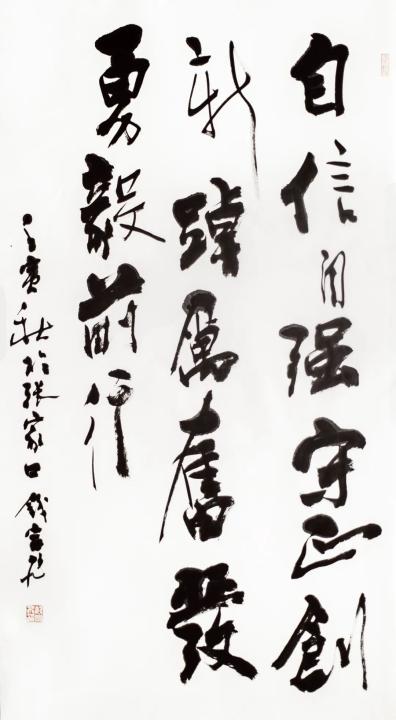 自信自强守正創
新踔厲奮發
勇毅前行
壬寅秋於張家口錢富